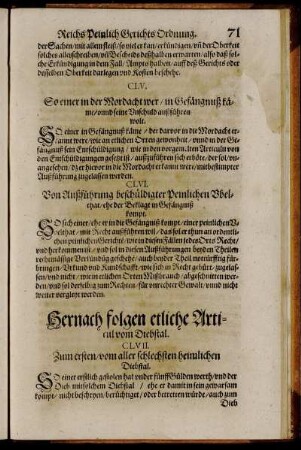 Reichs Peinlich Gerichts Ordnung. 71
der Sachen / mit allem fleiß / so viel er kan / erkündigen / vñ der Oberkeit
solches alles schreiben / vñ Bescheids deßhalben erwarten / also daß sol-
che Erkündigung in dem Fall / Ampts halben / auff deß Gerichts oder
desselben Oberkeit darlegen und Kosten beschehe.
CLV.
So einer in der Mordacht wer / in Gefängnuß kä-
me / vnnd seine Vnschuld außführen
wolt.
SO einer in Gefängnuß käme / der darvor in die Mordacht er-
kannt were / wie an etlichen Orten gewonheit / vnnd in der Ge-
fängnuß sein Entschüldigung / wie in den vorgesetzten Articuln von
den Entschüldigungen gesetzt ist / außzuführen sich erböte / der sol / vn-
angesehen / daß er hievor in die Mordacht erkannt were / mit bestimpter
Außführung zugelassen werden.
CLVI.
Von Außführung beschüldigter Peinlichen Vbel-
that / ehe der Beklagte in Gefängnuß
kompt.
SO sich einer / ehe er in die Gefängnuß kompt / einer peinlichen V-
belthat / mit Recht außführen wil / das sol er thun an ordentli-
chen peinlichen Gerichte / wie in diesen Fällen jedes Orts Recht /
und herkommen ist / und sol in diesen Außführungen beyden Theilen
nohtürfftige Für-
heischung / Vrkund und Kundschafft / wie sich zu Recht gebürt / zugelas-
sen / und nicht / wie in etlichen Orten Mißbrauch / abgeschnitten wer-
den / und sol derhalb zum Rechten für unrechter Gewalt / und nicht
weiter vergleyt werden.
Hernach folgen etliche Arti-
cul vom Diebstal.
CLVII.
Zum ersten / vom aller schlechsten heimlichen
Diebstal.
SO einer erstlich gestolen hat under fünff Gülden werth / und der
Dieb mit solchem Diebstal / ehe er damit in sein gewarsam
kompt / nicht beschryen / berüchtiget / oder betretten würde / auch zum
Dieb